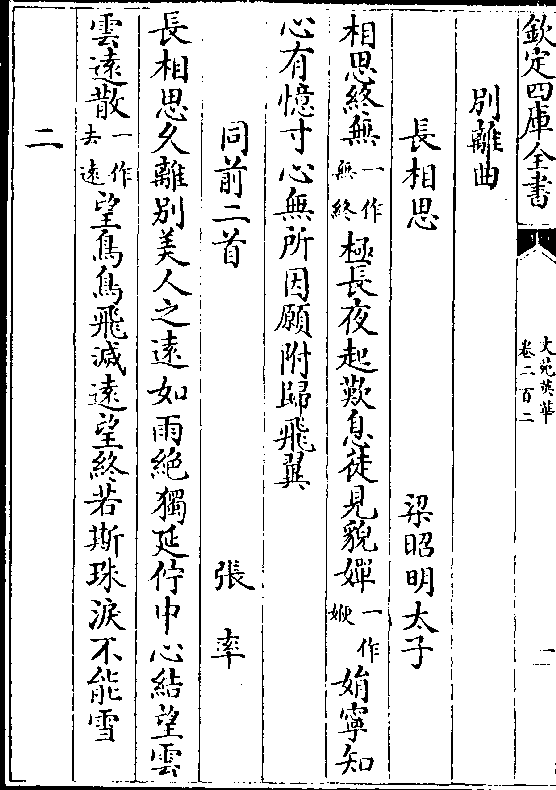 欽定四庫全書
文苑英華
卷二百二
一
別離曲
長相思 梁昭明太子
相思終無一作無終極長夜起歎息徒見貌嬋一作嫂娟寧知
心有憶寸心無所因願附歸飛翼
同前二首 張率
長相思久離別美人之遠如雨絶獨延佇中心結望雲
雲遠散一作去遠望鳥鳥飛滅遠望終若斯珠淚不能雪
二